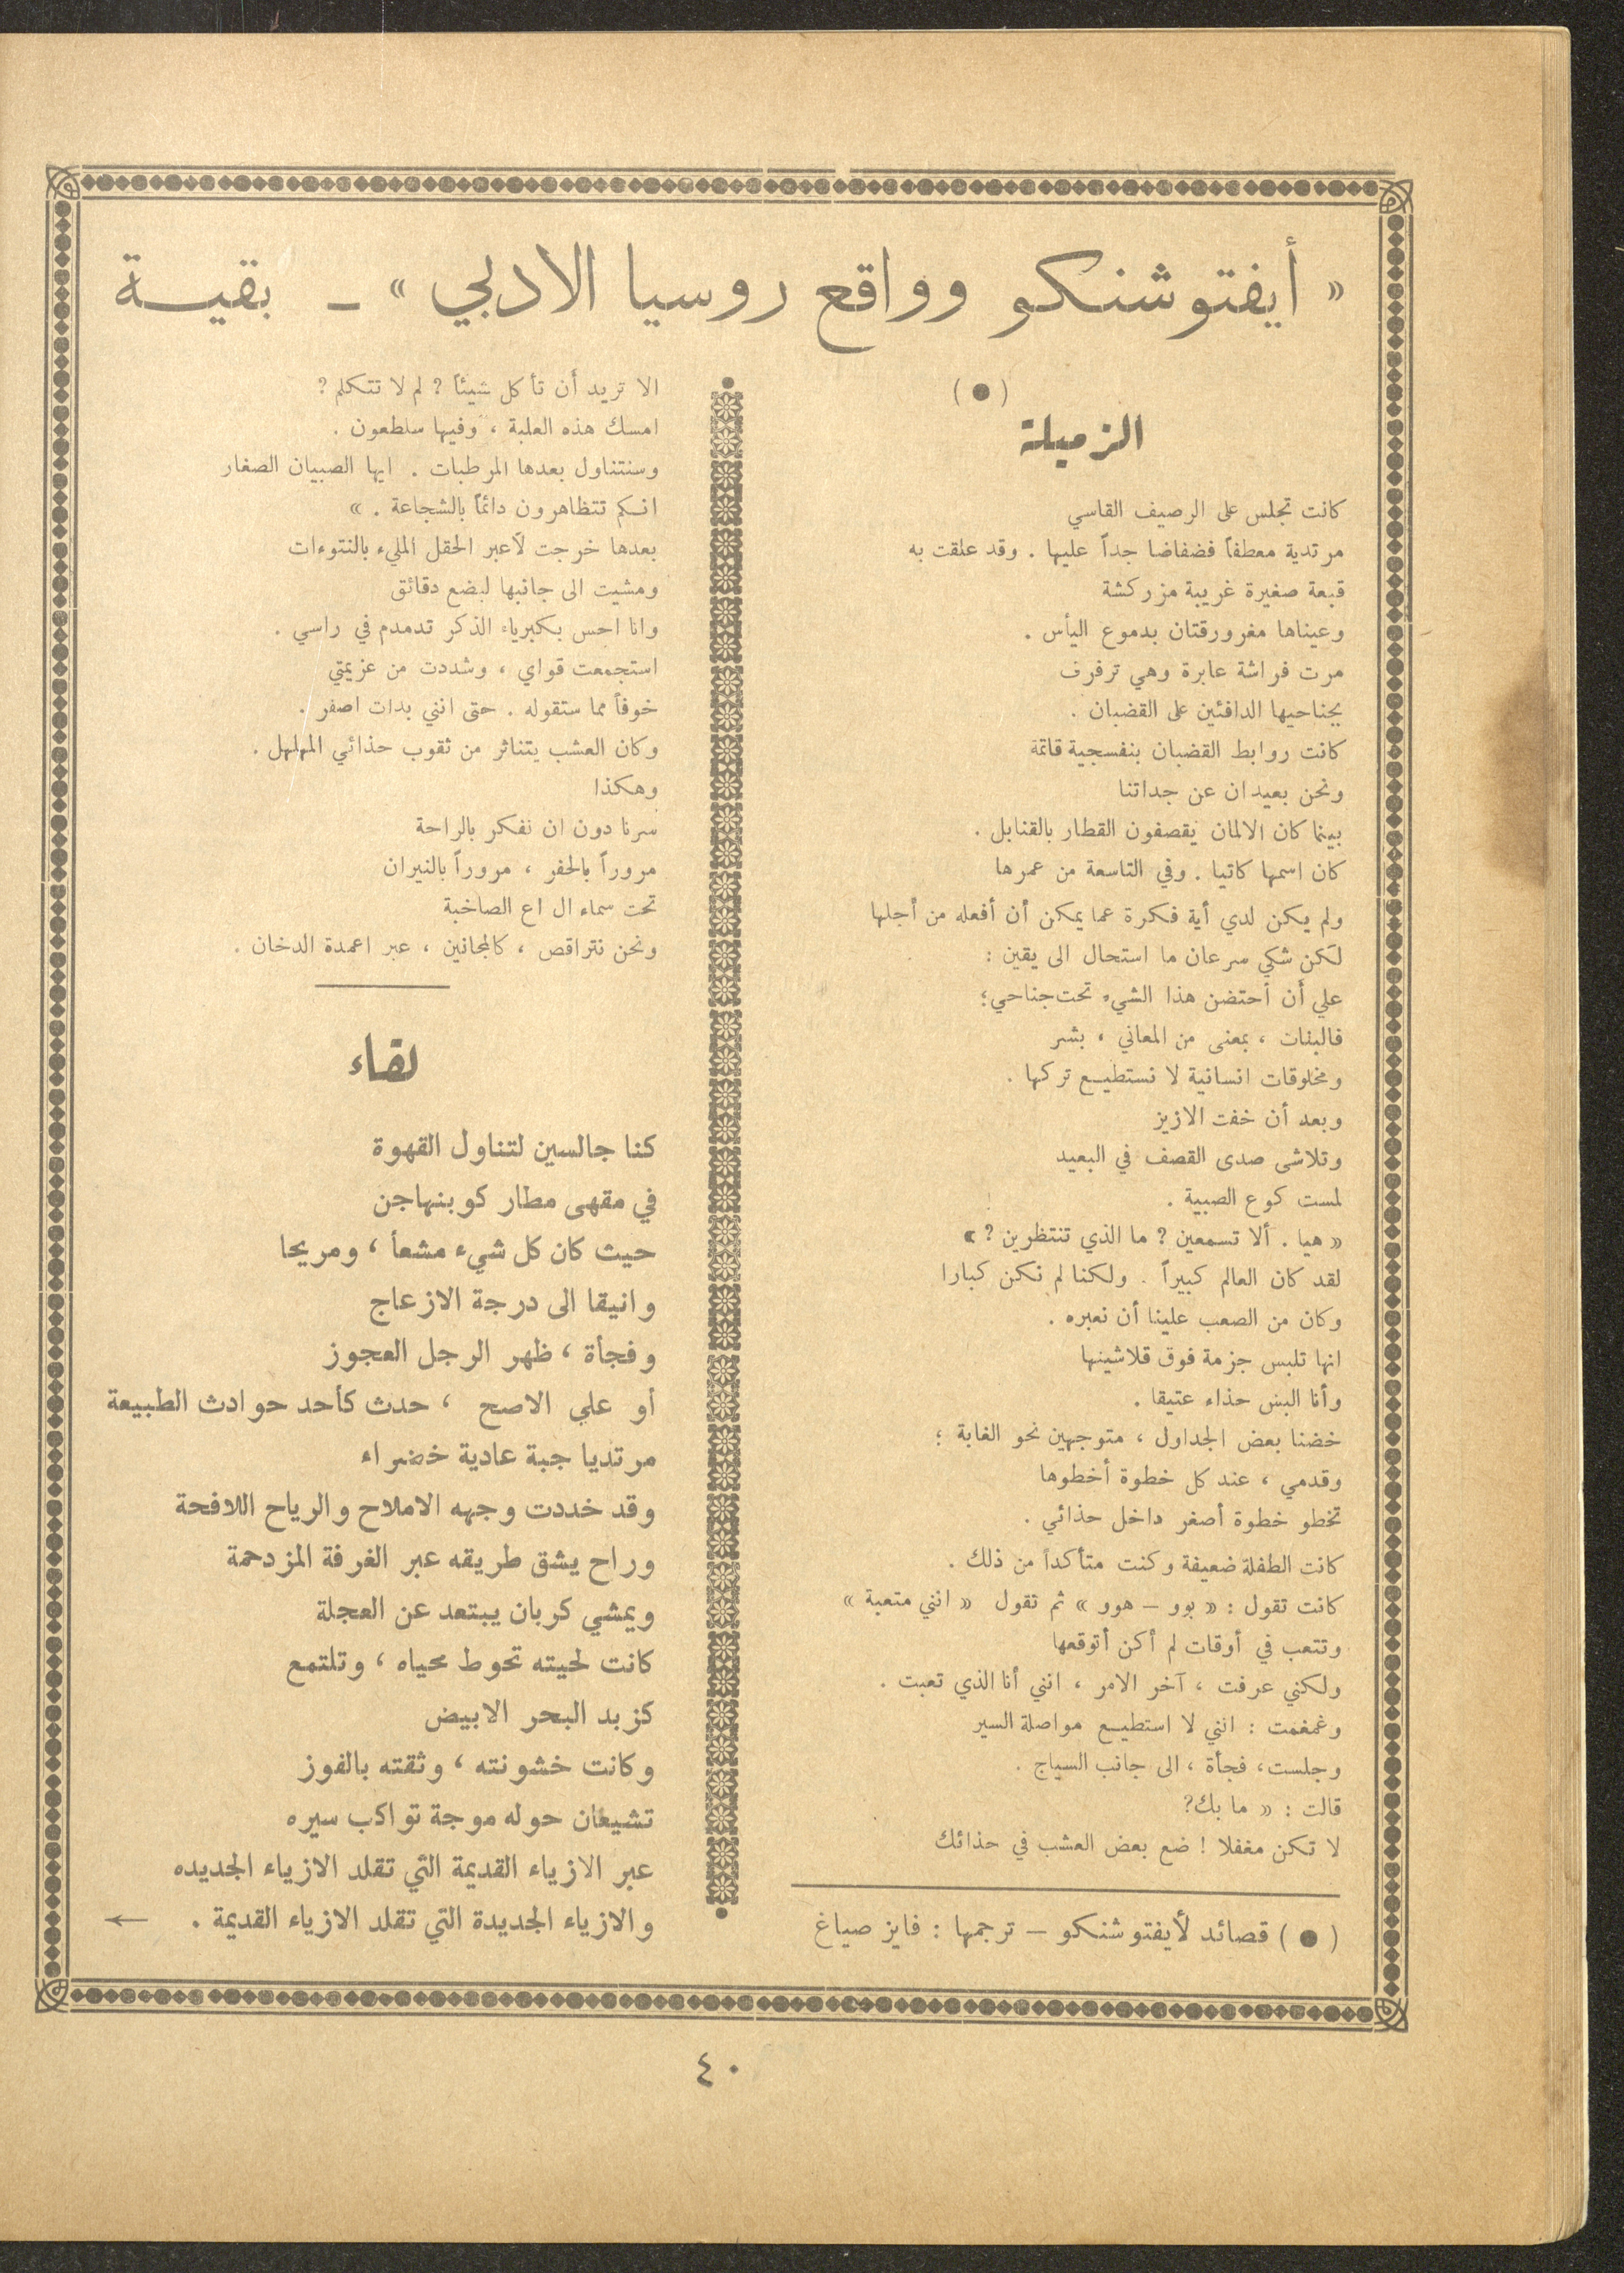 « أيفتوشنكو وواقع روسيا الادبي » ـ بقيــة
( ● )
الزميلة
كانت تجلس على الرصيف القاسي
مرتدية معطفاً فضفاضا جداً عليها . وقد علقت به
قبعة صغيرة غريبة مزركشة
وعيناها مغرورقتان بدموع اليأس .
مرت فراشة عابرة وهي ترفرف
بجناحيها الدافئين على القضبان .
كانت روابط القضبان بنفسجية قاتمة
ونحن بعيدان عن جداتنا
بينما كان الالمان يقصفون القطار بالقنابل .
كان اسمها كاتيا . وفي التاسعة من عمرها
ولم يكن لدي أية فكرة عما يمكن أن أفعله من أجلها
لكن شكي سرعان ما استحال الى يقين :
علي أن أحتضن هذا الشيء تحت جناحي؛
فالبنات ، بمعنى من المعاني ، بشر
ومخلوقات انسانية لا نستطيـع تركها .
وبعد أن خفت الازيز
وتلاشى صدى القصف في البعيد
لمست كوع الصبية .
« هيا . ألا تسمعين ? ما الذي تنتظرين ? »
لقد كان العالم كبيراً . ولكنا لم نكن كبارا
وكان من الصعب علينا أن نعبره .
انها تلبس جزمة فوق قلاشينها
وأنا البس حذاء عتيقا .
خضنا بعض الجداول ، متوجهين نحو الغابة ؛
وقدمي ، عند كل خطوة أخطوها
تخطو خطوة أصغر داخل حذائي .
كانت الطفلة ضعيفة وكنت متأكداً من ذلك .
كانت تقول : « بوو – هوو » ثم تقول « انني متعبة »
وتتعب في أوقات لم أكن أتوقعها
ولكني عرفت ، آخر الامر ، انني أنا الذي تعبت .
وغمغمت : انني لا استطيـع مواصلة السير
وجلست، فجأة ، الى جانب السياج .
قالت : « ما بك?
لا تكن مغفلا ! ضع بعض العشب في حذائك
( ● ) قصائد لأيفتوشنكو – ترجمها : فايز صياغ
الا تريد أن تأكل شيئاً ? لم لا تتكلم ?
امسك هذه العلبة ، وفيها سلطعون .
وسنتناول بعدها المرطبات . ايها الصبيان الصغار
انـكم تتظاهرون دائماً بالشجاعة . »
بعدها خرجت لأعبر الحقل المليء بالنتوءات
ومشيت الى جانبها لبضع دقائق
وانا احس بكبرياء الذكر تدمدم في راسي .
استجمعت قواي ، وشددت من عزيمتي
خوفاً مما ستقوله . حتى انني بدات اصفر .
وكان العشب يتناثر من ثقوب حذائي المهلهل .
وهكذا
سرنا دون ان نفكر بالراحة
مروراً بالحفر ، مروراً بالنيران
تحت سماء ال اع الصاخبة
ونحن نتراقص ، كالمجانين ، عبر اعمدة الدخان .
لقاء
كنا جالسين لتناول القهوة
في مقهى مطار كوبنهاجن
حيث كان كل شيء مشعاً ، ومريحا
وانيقا الى درجة الازعاج
وفجأة ، ظهر الرجل العجوز
أو على الاصح ، حدث كأحد حوادث الطبيعة
مرتديا جبة عادية خضراء
وقد خددت وجهه الاملاح والرياح اللافحة
وراح يشق طريقه عبر الغرفة المزدحمة
ويمشي كربان يبتعد عن العجلة
كانت لحيته تحوط محياه ، وتلتمع
كزبد البحر الابيض
وكانت خشونته ، وثقته بالفوز
تشيعان حوله موجة تواكب سيره
عبر الازياء القديمة التي تقلد الازياء الجديده
والازياء الجديدة التي تقلد الازياء القديمة . ←
٤٠